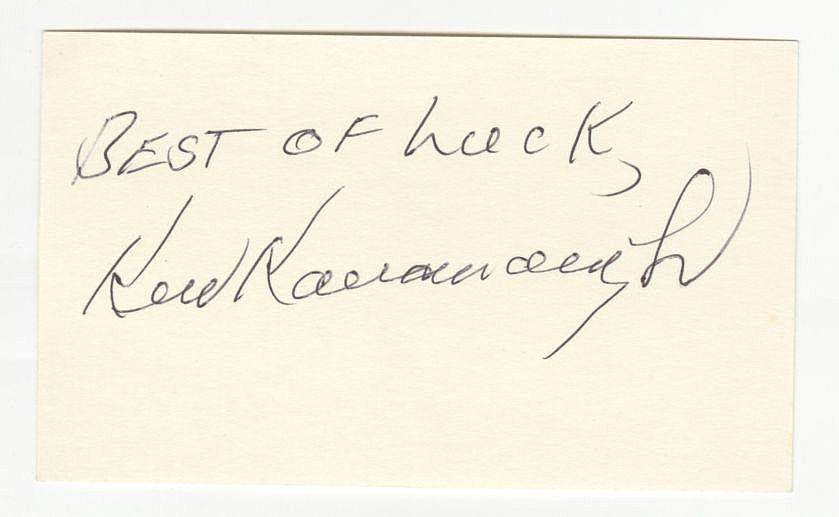 BEST OF LUCK,
Ken Kavanaugh